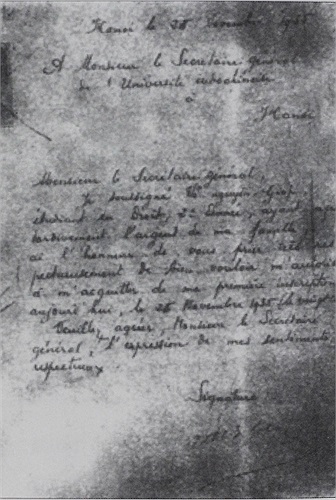 Hanoi le 28 Novembre 1935
A Monsieur le Secrétaire général
de l'Université indochinoise
à
Hanoi
Monsieur le Secrétaire général,
Je soussigné Võ nguyên Giap
étudiant en Droit, 2e Année, ayant reçu
tardivement l'argent de ma famille
ai l'honneur de vous prier très res
pectueusement de bien vouloir m'autoriser
à m'acquitter de ma première inscription
aujourd'hui, le 28 Novembre 1935
Veuillez agréer, Monsieur le Secrétaire
général, l'expression de mes sentiments
respectueux.
Signature